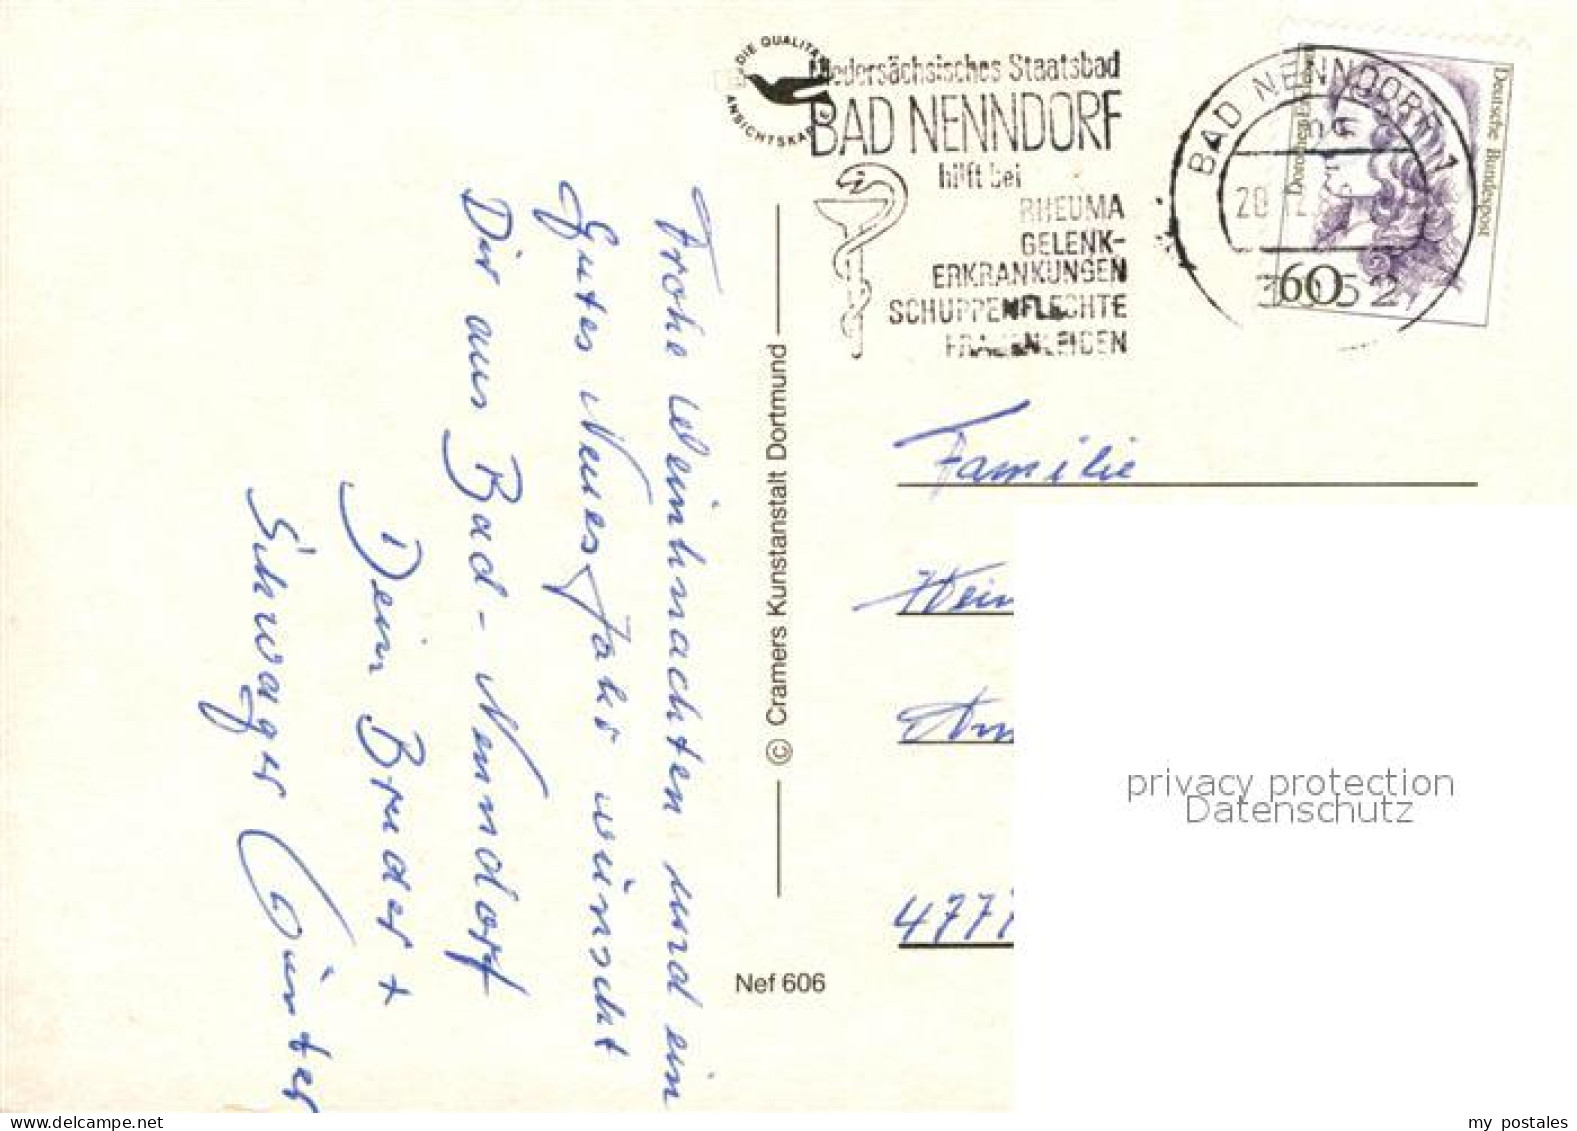 DIE QUALITÄ
ANSICHTSKA
Niedersächsisches Staatsbad
BAD NENNDORF
hilft bei
RHEUMA
GELENK-
ERKRANKUNGEN
SCHUPPENFLECHTE
FRAUENLEIDEN
BAD NENNDORF 1
20
3052
Deutsche Bundespost
60
Frohe Weihnachten und ein
Gutes Neues Jahr wünscht
Dir aus Bad-Nenndorf
Dein Bruder +
Schwager Günter
© Cramers Kunstanstalt Dortmund
Nef 606
Familie
Hein
4777
privacy protection
Datenschutz
my postales